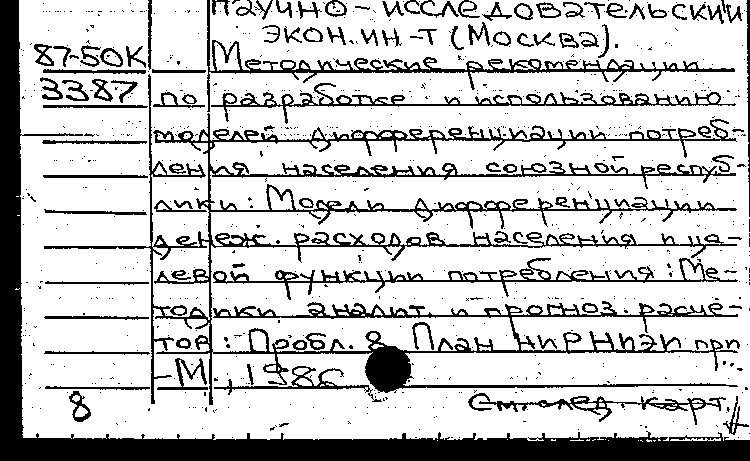 НАУЧНО-ИССЛЕДОВАТЕЛЬСКИЙ
ЭКОН. ИН-Т (МОСКВА).
87-50К Методические рекомендации
3387 по разработке и использованию
моделей дифференциации потреб-
ления населения союзной респуб-
лики: Модели дифференциации
денеж. расходов населения и це-
левой функции потребления: Ме-
тодики аналит. и прогноз. расче-
тов: Пробл. 8 План НИР НИЭИ при
-М., 1986 ...
8 См. след. карт.